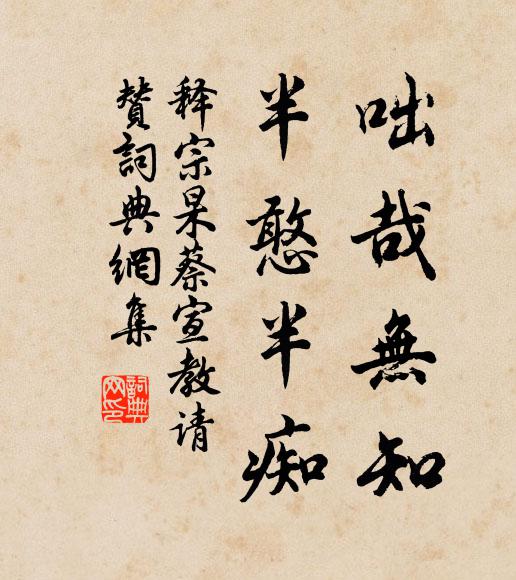 咄哉無知
半憨半痴
释宗杲蔡宣教请
赞詞典網集
詞典
网印